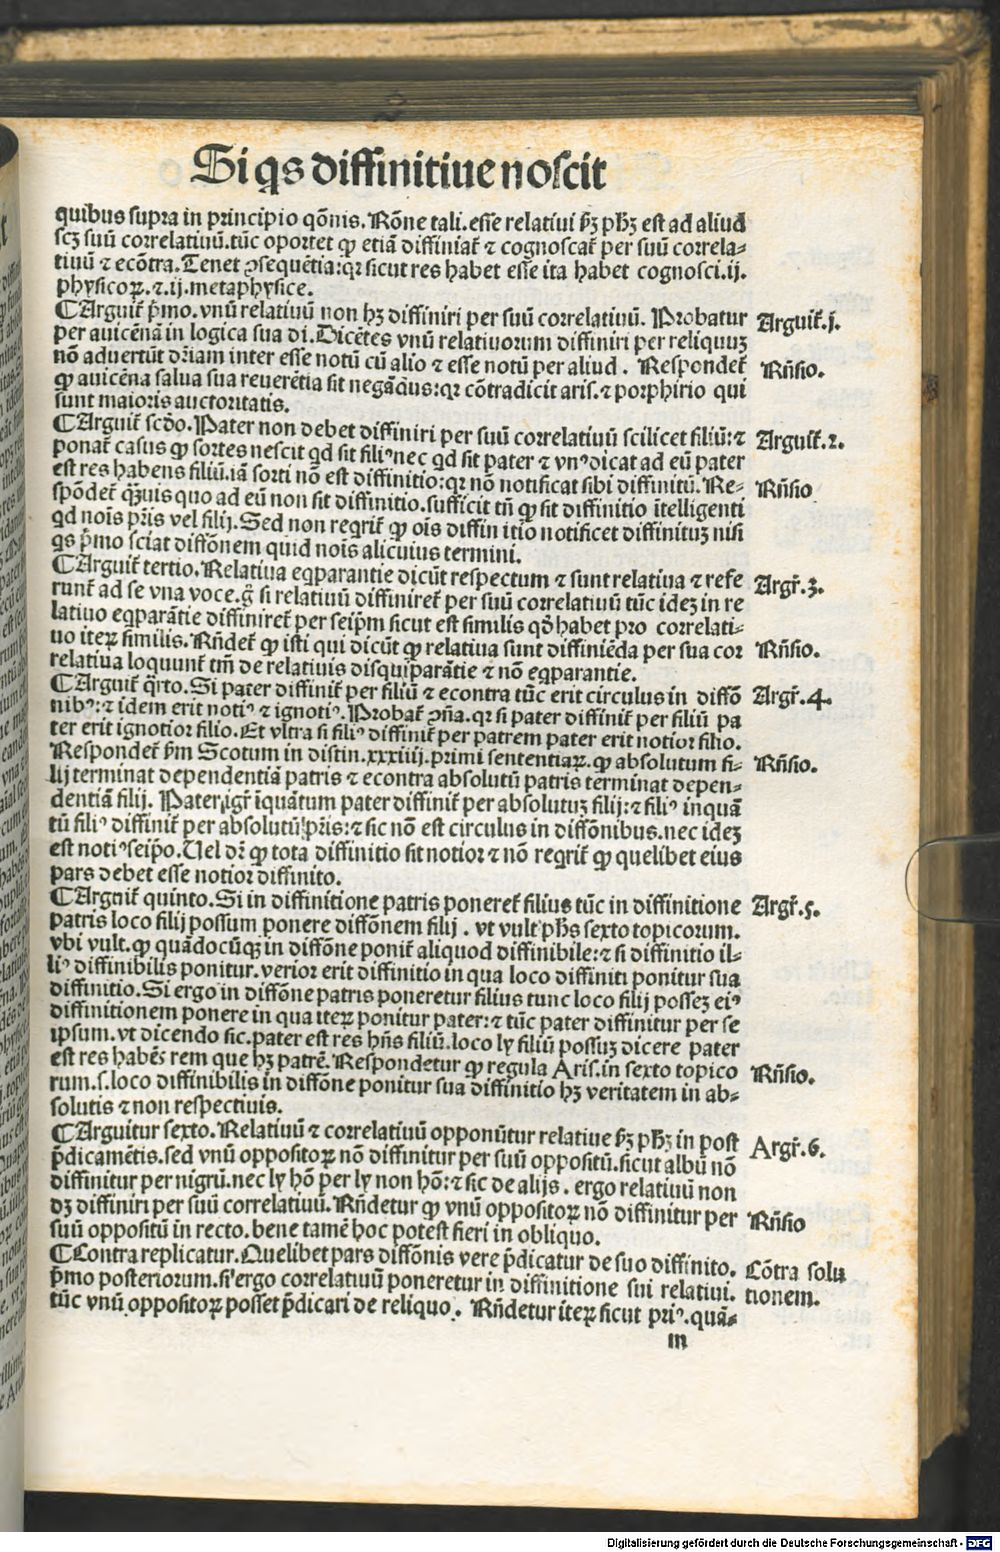 Si qs diffinitiue noscit
quibus supra in principio qōnis. Rōne tali. esse relatiui ẜʒ ph̄ʒ est ad aliud
scʒ suū correlatiuū. tūc oportet ꝙ etiā diffiniat᷑ ⁊ cognoscat᷑ per suū correla⸗
tiuū ⁊ ecōtra. Tenet ꝯsequētia: qꝛ sicut res habet esse ita habet cognosci. ij.
physicoꝝ. ⁊. ij. metaphysice.
¶Arguit᷑ p̄mo. vnū relatiuū non hʒ diffiniri per suū correlatiuū. Probatur
Arguit᷑. j.
per auicēnā in logica sua di. Dicētes vnū relatiuorum diffiniri per reliquuʒ
nō aduertūt dr̄iam inter esse notū cū alio ⁊ esse notū per aliud. Respondet᷑
Rn̄sio.
ꝙ auicēna salua sua reuerētia sit negādus: qꝛ cōtradicit aris. ⁊ porphirio qui
sunt maioris auctoritatis.
¶Arguit᷑ scd̄o. Pater non debet diffiniri per suū correlatiuū scilicet filiū: ⁊
Arguit᷑. 2.
ponat᷑ casus ꝙ sortes nescit qd sit filiꝰ nec qd sit pater ⁊ vnꝰ dicat ad eū pater
est res habens filiū. iā sorti nō est diffinitio: qꝛ nō notificat sibi diffinitū. Re⸗
Rn̄sio
spōdet᷑ q̄ʒuis quo ad eū non sit diffinitio. sufficit tn̄ ꝙ sit diffinitio ītelligenti
qd noīs pr̄is vel filij. Sed non reqrit᷑ ꝙ oīs diffin itio notificet diffinituʒ nisi
qs p̄mo sciat diffōnem quid nois alicuius termini.
¶Arguit᷑ tertio. Relatiua eqparantie dicūt respectum ⁊ sunt relatiua ⁊ refe
Argr̄. 3.
runt᷑ ad se vna voce. g̊ si relatiuū diffiniret᷑ per suū correlatiuū tūc ideʒ in re
latiuo eqparātie diffiniret᷑ per seip̄m sicut est similis qd̄ habet pro correlati⸗
uo iteꝝ similis. Rn̄det᷑ ꝙ isti qui dicūt ꝙ relatiua sunt diffiniēda per sua cor
Rn̄sio.
relatiua loquunt᷑ tm̄ de relatiuis disquiparātie ⁊ nō eqparantie.
¶Arguit᷑ q̄rto. Si pater diffinit᷑ per filiū ⁊ econtra tūc erit circulus in diffō
Argr̄. 4.
nibꝰ: ⁊ idem erit notiꝰ ⁊ ignotiꝰ. Probat᷑ ꝯn̄a. qꝛ si pater diffinit᷑ per filiū pa
ter erit ignotior filio. Et vltra si filiꝰ diffinit᷑ per patrem pater erit notior filio.
Respondet᷑ p̄m Scotum in distin. xxxiiij. primi sententiaꝝ. ꝙ absolutum fi⸗
Rn̄sio.
lij terminat dependentiā patris ⁊ econtra absolutū patris terminat depen⸗
dentiā filij. Pater igr̄ īquātum pater diffinit᷑ per absolutuʒ filij: ⁊ filiꝰ inquā
tū filiꝰ diffinit᷑ per absolutū pr̄is: ⁊ sic nō est circulus in diffōnibus. nec ideʒ
est notiꝰ seip̄o. Uel dr̄ ꝙ tota diffinitio sit notior ⁊ nō reqrit᷑ ꝙ quelibet eius
pars debet esse notior diffinito.
¶Arguit᷑ quinto. Si in diffinitione patris poneret᷑ filius tūc in diffinitione
Argr̄. 5.
patris loco filij possum ponere diffōnem filij. vt vult ph̄s sexto topicorum.
vbi vult. ꝙ quādocūqʒ in diffōne ponit᷑ aliquod diffinibile: ⁊ si diffinitio il⸗
liꝰ diffinibilis ponitur. verior erit diffinitio in qua loco diffiniti ponitur sua
diffinitio. Si ergo in diffōne patris poneretur filius tunc loco filij posseʒ eiꝰ
diffinitionem ponere in qua iteꝝ ponitur pater: ⁊ tūc pater diffinitur per se
ipsum. vt dicendo sic. pater est res hn̄s filiū. loco ly filiū possuʒ dicere pater
est res habēs rem que hʒ patrē. Respondetur ꝙ regula Aris. in sexto topico
Rn̄sio.
rum. s. loco diffinibilis in diffōne ponitur sua diffinitio hʒ veritatem in ab⸗
solutis ⁊ non respectiuis.
¶Arguitur sexto. Relatiuū ⁊ correlatiuū opponūtur relatiue ẜʒ ph̄ʒ in post
Argr̄. 6.
p̄dicamētis. sed vnū oppositoꝝ nō diffinitur per suū oppositū. sicut albū nō
diffinitur per nigrū. nec ly hō per ly non hō: ⁊ sic de alijs. ergo relatiuū non
dʒ diffiniri per suū correlatiuū. Rn̄detur ꝙ vnū oppositoꝝ nō diffinitur per
Rn̄sio
suū oppositū in recto. bene tamē hoc potest fieri in obliquo.
¶Contra replicatur. Quelibet pars diffōnis vere p̄dicatur de suo diffinito.
Cōtra solu
p̄mo posteriorum. si ergo correlatiuū poneretur in diffinitione sui relatiui.
tionem.
tūc vnū oppositoꝝ posset p̄dicari de reliquo. Rn̄detur iteꝝ sicut priꝰ. quā⸗
m
Digitalisierung gefördert durch die Deutsche Forschungsgemeinschaft - DFG